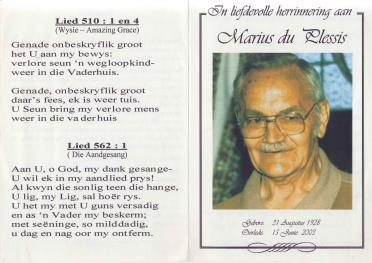 Lied 510 : 1 en 4
(Wysie – Amazing Grace)
Genade onbeskryflik groot
het U aan my bewys:
verlore seun 'n wegloopkind-
weer in die Vaderhuis.
Genade, onbeskryflik groot
daar's fees, ek is weer tuis.
U Seun bring my verlore mens
weer in die vaderhuis
Lied 562 : 1
( Die Aandgesang)
Aan U, o God, my dank gesange-
U wil ek in my aandlied prys!
Al kwyn die sonlig teen die hange,
U lig, my Lig, sal hoër rys.
U het my met U guns versadig
en as 'n Vader my beskerm;
met seëninge, so milddadig,
u dag en nag oor my ontferm.
In liefdevolle herrinnering aan
Marius du Plessis
Gebore 31 Augustus 1928
Oorlede 15 Junie 2003